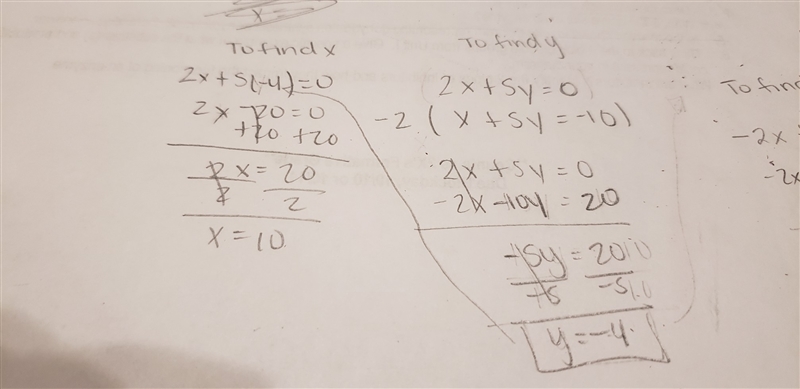 x
To find x
2x + 5(-4) = 0
2x - 20 = 0
+20 +20
2x = 20
2 2
x = 10
To find y
2x + 5y = 0
-2 ( x + 5y = -10 )
2x + 5y = 0
-2x - 10y = 20
-5y = 20
-5 -5
y = -4
To find
-2x
-2x